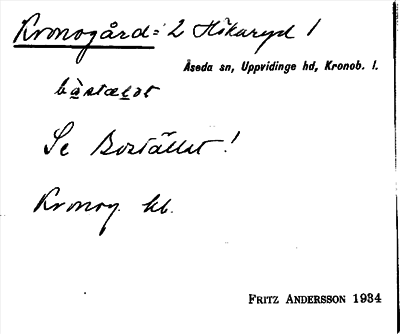 Kronogård = 2 Hökaryd 1
Åseda sn, Uppvidinge hd, Kronob. l.
bàstæḷət
Se Bostället!
Kronog. hb.
FRITZ ANDERSSON 1934